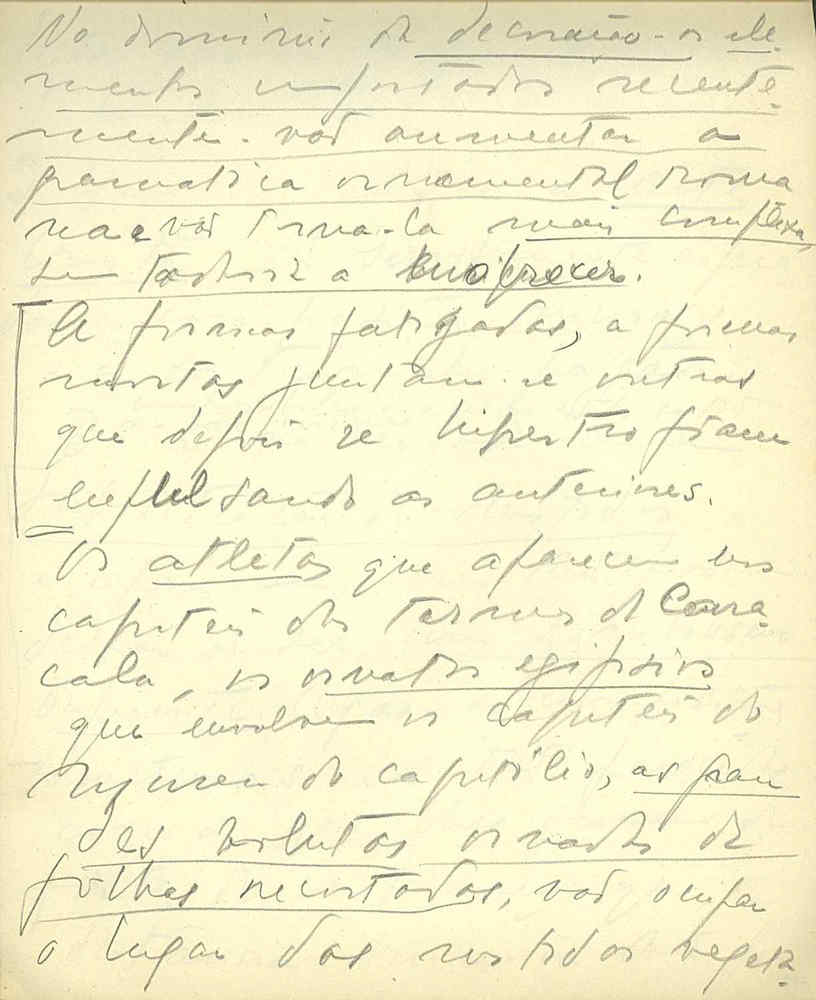 No dominio da decoração - os ele-
mentos importados recente-
mente - vão aumentar a
gramatica ornamental roma
na e vão torna-la mais complexa,
sem todavia a
A formas fatigadas, a formas
mortas juntam-se outras
que depois se hipertrofiam
expulsando as anteriores.
Os atletas que aparecem nos
capiteis das termas de Cara-
cala, os ornatos egipcios
que envolvem os capiteis do
museu do capitólio, as gran
des volutas ornadas de
folhas recortadas, vão ocupar
o lugar dos vegeta-